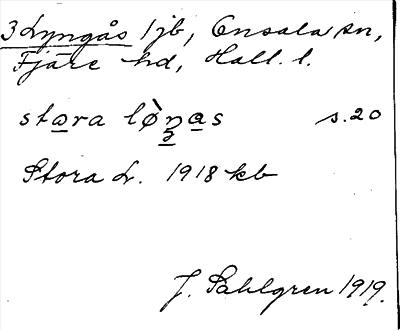 3 Lyngås 1 jb, Onsala sn,
Fjäre hd, Hall. l.
stara lø̀ŋas s.20
Stora L. 1918 kb
J. Sahlgren 1919.